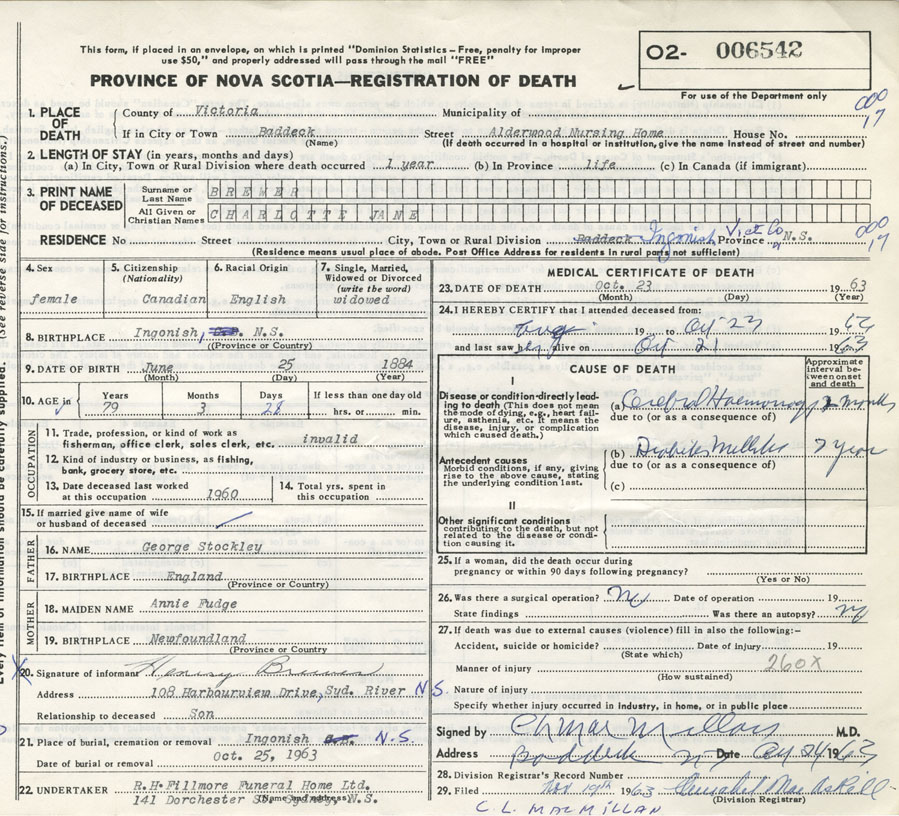 This form, if placed in an envelope, on which is printed "Dominion Statistics - Free, penalty for improper
use $50," and properly addressed will pass through the mail "FREE"
O2- 006542
PROVINCE OF NOVA SCOTIA—REGISTRATION OF DEATH
For use of the Department only
1. PLACE OF DEATH County of Victoria Municipality of 000 17
If in City or Town Baddeck (Name) Street Alderwood Nursing Home House No.
(If death occurred in a hospital or institution, give the name instead of street and number)
2. LENGTH OF STAY (in years, months and days)
(a) In City, Town or Rural Division where death occurred 1 year (b) In Province life (c) In Canada (if immigrant)
3. PRINT NAME OF DECEASED
Surname or Last Name BREWER
All Given or Christian Names CHARLOTTE JANE
RESIDENCE No Street City, Town or Rural Division Baddeck Ingonish Vict Co Province N.S. 000 17
(Residence means usual place of abode. Post Office Address for residents in rural parts not sufficient)
4. Sex female
5. Citizenship (Nationality) Canadian
6. Racial Origin English
7. Single, Married, Widowed or Divorced (write the word) widowed
8. BIRTHPLACE Ingonish, N.S.
(Province or Country)
9. DATE OF BIRTH June 25 1884
(Month) (Day) (Year)
10. AGE in Years 79 Months 3 Days 28 If less than one day old hrs. or min.
OCCUPATION
11. Trade, profession, or kind of work as fisherman, office clerk, sales clerk, etc. invalid
12. Kind of industry or business, as fishing, bank, grocery store, etc.
13. Date deceased last worked at this occupation 1960
14. Total yrs. spent in this occupation
15. If married give name of wife or husband of deceased
FATHER
16. NAME George Stockley
17. BIRTHPLACE England
(Province or Country)
MOTHER
18. MAIDEN NAME Annie Fudge
19. BIRTHPLACE Newfoundland
(Province or Country)
20. Signature of informant Henry Brewer
Address 108 Harbourview Drive, Syd. River N.S.
Relationship to deceased Son
21. Place of burial, cremation or removal Ingonish N.S.
Date of burial or removal Oct. 25, 1963
22. UNDERTAKER R.H. Fillmore Funeral Home Ltd.
141 Dorchester St. Sydney, N.S.
(Name and address)
MEDICAL CERTIFICATE OF DEATH
23. DATE OF DEATH Oct. 23 1963
(Month) (Day) (Year)
24. I HEREBY CERTIFY that I attended deceased from:
19 to Oct 23 19
and last saw her alive on Oct 21 1963
CAUSE OF DEATH
Approximate interval between onset and death
I
Disease or condition directly leading to death (This does not mean the mode of dying, e.g., heart failure, asthenia, etc. It means the disease, injury, or complication which caused death.)
(a) Haemorrhage months
due to (or as a consequence of)
Antecedent causes
Morbid conditions, if any, giving rise to the above cause, stating the underlying condition last.
(b) Diabetes Mellitus
due to (or as a consequence of)
(c)
II
Other significant conditions contributing to the death, but not related to the disease or condition causing it.
25. If a woman, did the death occur during pregnancy or within 90 days following pregnancy?
(Yes or No)
26. Was there a surgical operation? No Date of operation 19
State findings Was there an autopsy? No
27. If death was due to external causes (violence) fill in also the following:-
Accident, suicide or homicide? Date of injury 19
(State which)
Manner of injury 260X
(How sustained)
Nature of injury
Specify whether injury occurred in industry, in home, or in public place
Signed by C L MacMillan M.D.
Address Baddeck NS Date Oct 24 1963
28. Division Registrar's Record Number
29. Filed Nov 19th 1963 MacAskill
(Division Registrar)
C. L. MACMILLAN
(See reverse side for instructions.)
Every item of information should be carefully supplied.